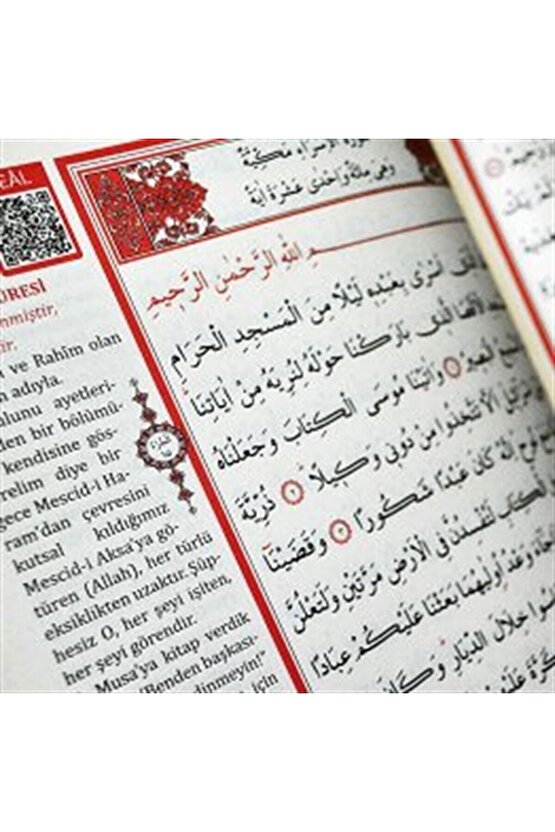 EÂL
ÛRESİ
nmiştir,
ir.
ve Rahîm olan
n adıyla.
ulunu ayetleri-
den bir bölümü-
kendisine gös-
relim diye bir
gece Mescid-i Ha-
ram'dan çevresini
kutsal kıldığımız
Mescid-i Aksa'ya gö-
türen (Allah), her türlü
eksiklikten uzaktır. Şüp-
hesiz O, her şeyi işiten,
her şeyi görendir.
Musa'ya kitap verdik
"Benden başkası-
dinmeyin!"
için
سُورَةُ الْاِسْرَاءِ مَكِّيَّةٌ
وَهِيَ مِائَةٌ وَاِحْدٰى عَشْرَةَ اٰيَةً
مِ اللّٰهِ الرَّحْمٰنِ الرَّحٖيمِ
اَسْرٰى بِعَبْدِهٖ لَيْلًا مِنَ الْمَسْجِدِ الْحَرَامِ
الَّذٖى بَارَكْنَا حَوْلَهُ لِنُرِيَهُ مِنْ اٰيَاتِنَا
الْبَصٖيرُ ١ وَاٰتَيْنَا مُوسَى الْكِتَابَ وَجَعَلْنَاهُ
اَلَّا تَتَّخِذُوا مِنْ دُونٖى وَكٖيلًا ٢ ذُرِّيَّةَ
نُوحٍ اِنَّهُ كَانَ عَبْدًا شَكُورًا ٣ وَقَضَيْنَا
الْكِتَابِ لَتُفْسِدُنَّ فِى الْاَرْضِ مَرَّتَيْنِ وَلَتَعْلُنَّ
وَعْدُ اُولٰيهُمَا بَعَثْنَا عَلَيْكُمْ عِبَادًا
خِلَالَ الدِّيَارِ وَكَانَ